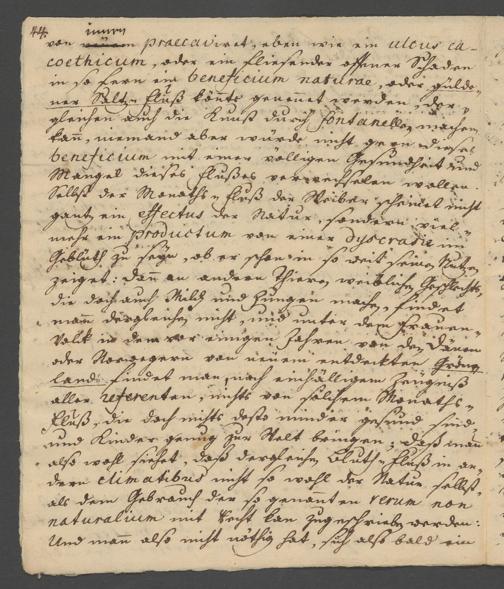 44.
innen
von praecaviret, eben wie ein ulcus ca-
coethicum, oder ein fliesender offener Schaden
in so fern ein beneficium naturae, oder gülde-
ner Saltz-Fluß könte genennet werden, der-
gleichen auch die Kunst durch fontanellen machen
kann, niemand aber würde nicht gern dieses
beneficium mit einer völligen Gesundheit und
Mangel dieses Flußes verwechselen wollen.
Selbst der Monaths-Fluß der Weiber scheinet nicht
gantz ein effectus der Natur, sondern viel-
mehr ein productum von einer dyscrasie im
Geblüth zu seyn, ob er schon in so weit seinen Nutzen
zeiget: dann an andern Thieren weiblichen Geschlechts,
die doch auch Milch und Jungen machen, findet
mann dergleichen nicht, und unter dem Frauen-
Volk in dem vor einigen Jahren von den Dänen
oder Norwegern von neuem entdeckten Grön-
land findet man, nach einhälligem Zeugniß
aller referenten, nichts von solchem Monaths-
Fluß, die doch nichts desto minder gesund sind,
und Kinder genug zur Welt bringen, daß mann
also wohl siehet, daß dergleichen Bluth-Fluß in an-
dern climatibus nicht so wohl der Natur selbst,
als dem Gebrauch der so genanten rerum non
naturalium mit Recht kan zugeschrieben werden:
Und mann also nicht nöthig hat, sich also bald ein